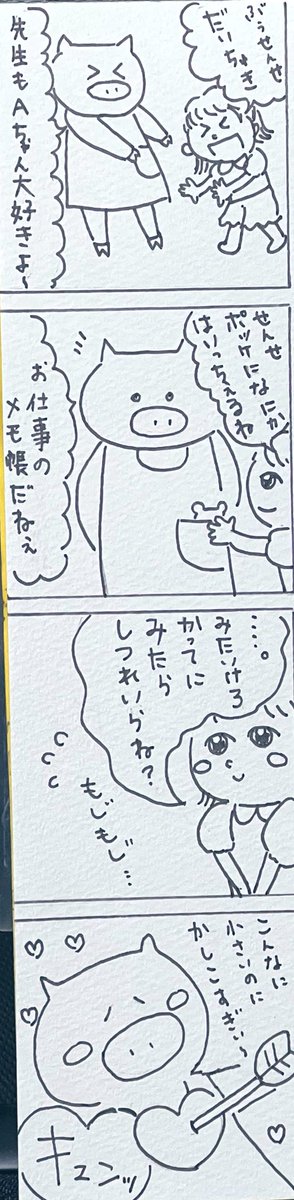 ぶぅせんせ
だいちゅき
先生もAちゃん大好きよ〜
せんせ
ポッケになにか
はいっちぇるね
お仕事の
メモ帳だねぇ
……。
みたいけろ
かってに
みたら
しつれいらね？
もじもじ…
こんなに
小さいのに
かしこすぎぃ〜
キュンッ